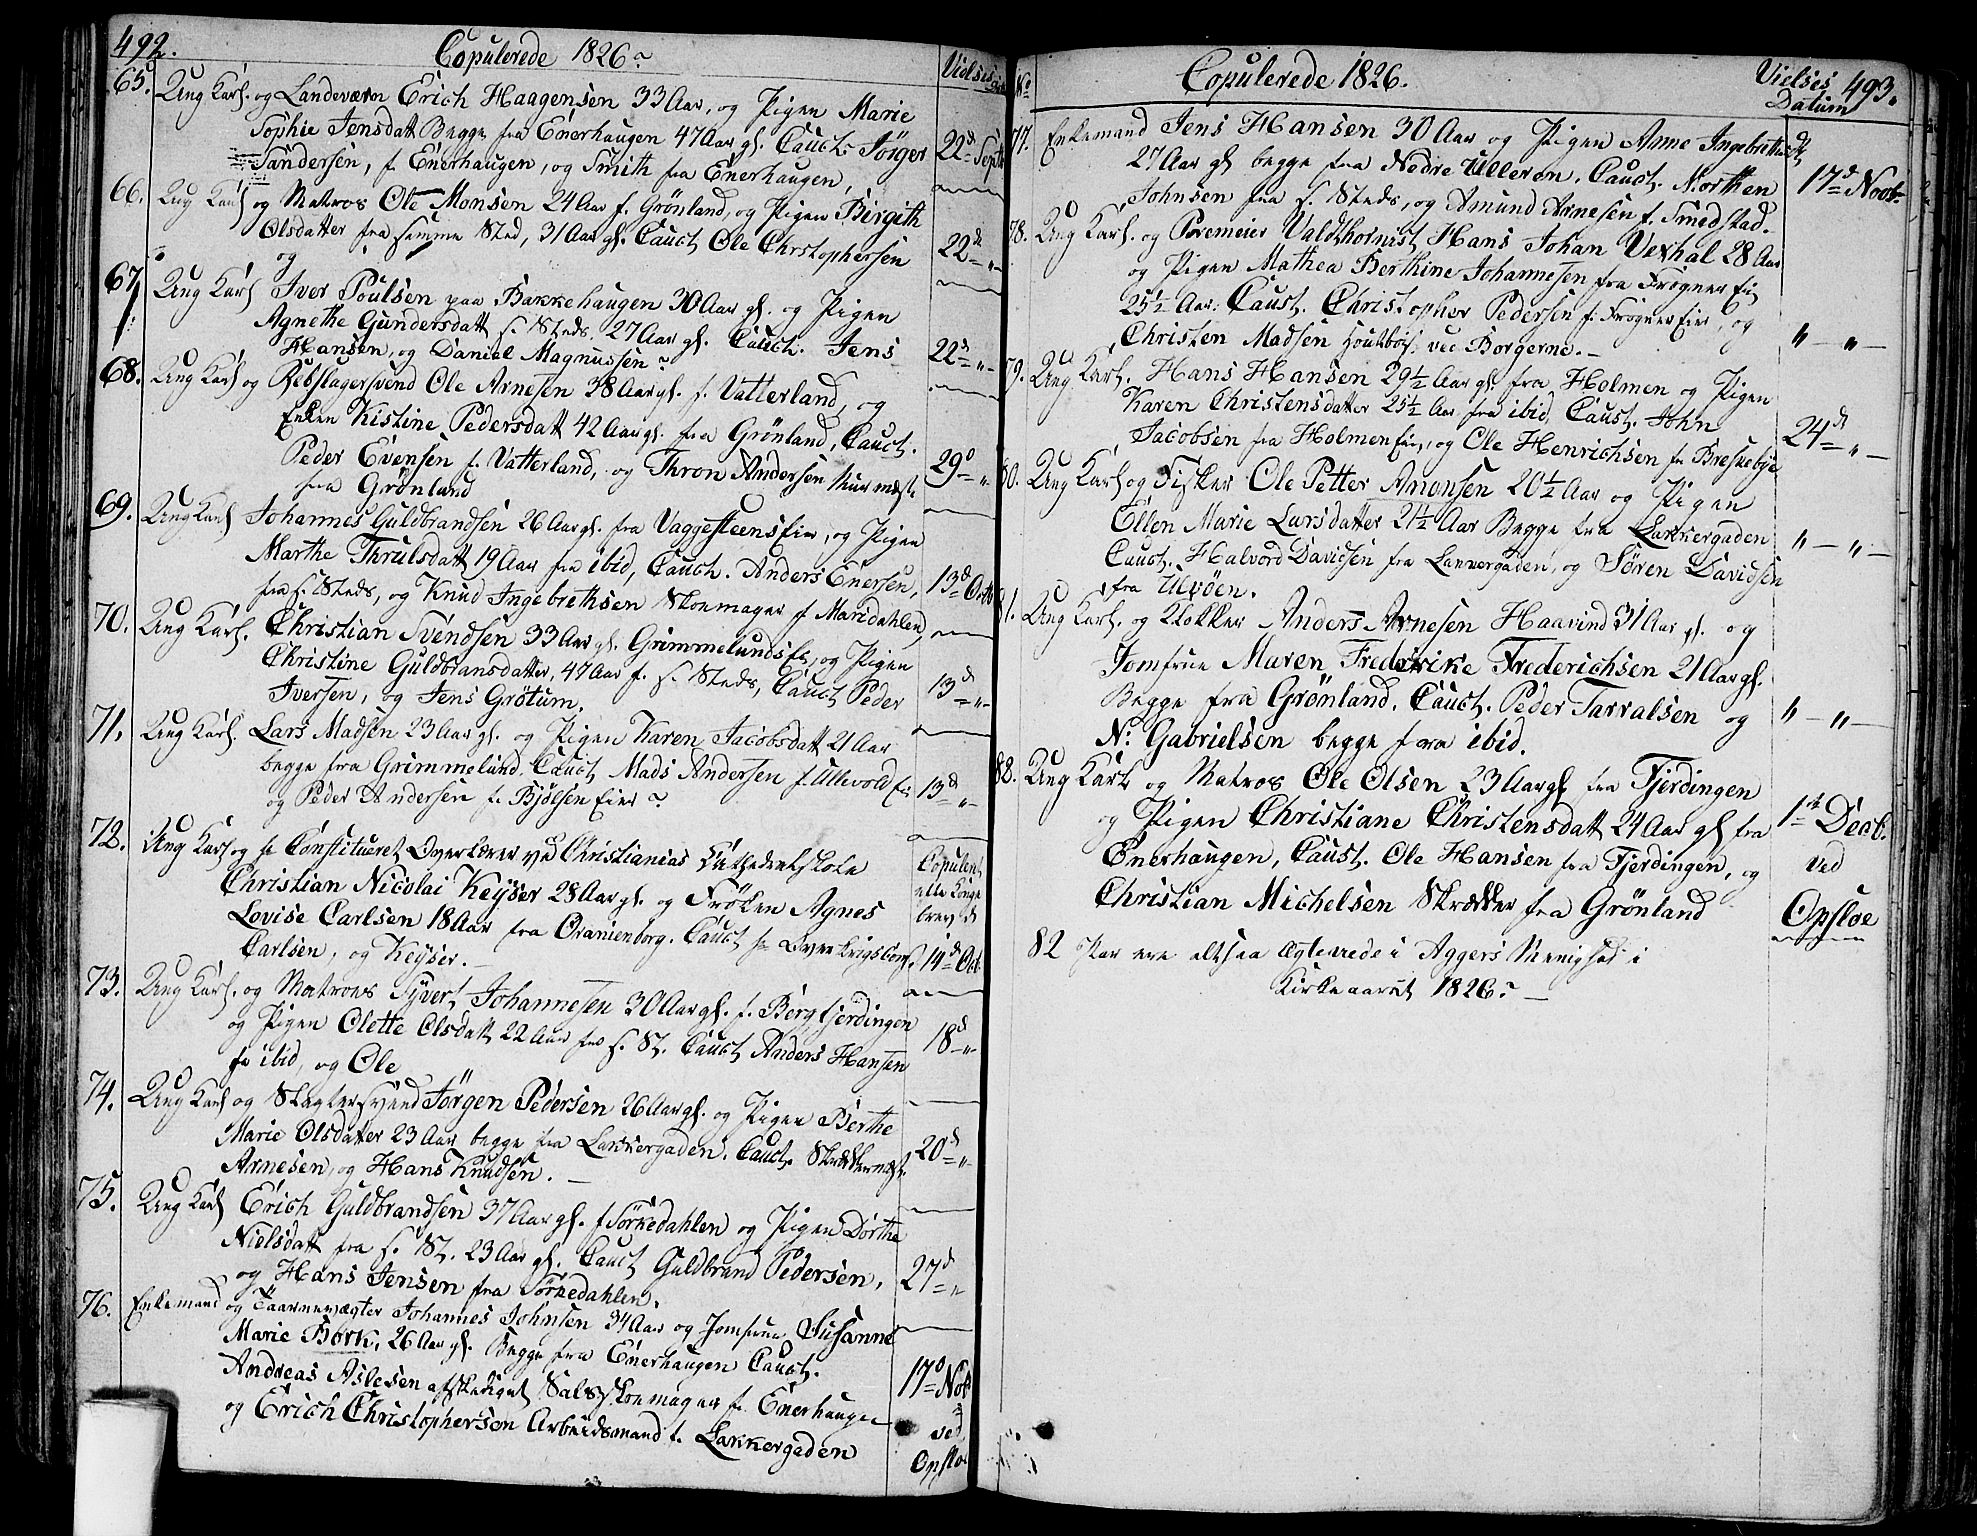 492.
Copulerede 1826
Vielses
65. Ung Karl. og Landeværn Erich Haagensen 33 Aar, og Pigen Marie
Sophie Jensdatt Begge fra Enerhaugen 47 Aar gl. Caut. Jörger
Sandersen, f. Enerhaugen, og Smith fra Enerhaugen,
22d Septb
66. Ung Karl og Matros Ole Monsen 24 Aar f. Grönland, og Pigen Birgith
Olsdatter fra samme Sted, 31 Aar gl. Caut Ole Christophersen
og
22de "
67 Ung Karl Iver Poulsen paa Bakkehaugen 30 Aar gl. og Pigen
Agnethe Gundersdatt s. Steds 27 Aar gl. Caut. Jens
Hansen, og Daniel Magnussen
22d "
68. Ung Karl og Rebslagersvend Ole Arnesen 28 Aar gl. f. Vatterland, og
Enken Kistine Pedersdatt 42 Aar gl. fra Grönland, Caut.
Peder Evensen f. Vatterland, og Thron Andersen Muurmest
fra Grönland
29d "
69. Ung Karl Johannes Guldbrandsen 26 Aar gl. fra Vaggesteens Eie, og Pigen
Marthe Thrulsdatt 19 Aar fra ibid, Caut. Anders Enersen,
fra s. Steds, og Knud Ingebrethsen Skomager f Maridahlen
13d Octb
70. Ung Karl. Christian Svendsen 33 Aar gl. Grimmelunds Eie, og Pigen
Christine Guldbransdatter, 47 Aar f. s. Steds, Caut Peder
Iversen, og Jens Grötum.
13d "
71. Ung Karl Lars Madsen 23 Aar gl. og Pigen Karen Jacobsdatt 21 Aar
begge fra Grimmelund. Caut Mads Andersen f. Ullevold Eie
og Peder Andersen f. Bjölsen Eier
13d "
72. Ung Karl og Hr Constitueret Overlærer ved Christianias Cathedralskole
Christian Nicolai Keyser 28 Aar gl. og Fröken Agnes
Lovise Carlsen 18 Aar fra Oranienborg. Caut Hr Overkrigscom.
Carlsen, og Keyser.
Copuleret
efter Konge
brev d
14d Oct
73. Ung Karl. og Matroes Syvert Johannesen 30 Aar gl. f. Bergfjerdingen
og Pigen Olette Olsdatt 22 Aar fra s. St. Caut Anders Hansen
fr ibid, og Ole
18d "
74. Ung Karl og Slagtersvend Jörgen Pedersen 26 Aar gl. og Pigen Berthe
Marie Olsdatter 23 Aar begge fra Lakkergaden. Caut. Skræddermest.
Arnesen, og Hans Knudsen.
20d "
75. Ung Karl Erich Guldbrandsen 37 Aar gl. f Sörkedahlen og Pigen Dorthe
Nielsdatt fra s. St. 23 Aar gl. Caut Guldbrand Pedersen,
og Hans Jensen fra Sörkedahlen.
27d "
76. Enkemand og Taarnevægter Johannes Johnsen 34 Aar og Jomfrue Susanne
Marie Bork, 26 Aar gl. Begge fra Enerhaugen Caut.
Andreas Aslesen afskediget Skomager f. Enerhaugen
og Erich Christophersen Arbeidsmand f. Lakkergaden
17d Nob
ved
Opsloe
No
Copulerede 1826.
Vielses
Datum
493.
77. Enkemand Jens Hansen 30 Aar og Pigen Anne Ingebrethsdt
27 Aar gl begge fra Nedre Ulleren. Caut. Morthen
Johnsen fra s. Steds, og Amund Arnesen f. Smedstad.
17d Novb.
78. Ung Karl. og Premeier Valdthornist Hans Johan Vexhal 28 Aar
og Pigen Mathea Berthine Johannesen fra Frogner Eie
25½ Aar. Caut. Christopher Pedersen f. Frogner Eier, og
Christen Madsen Houtbois ved Borgerne.
" — "
79. Ung Karl. Hans Hansen 29½ Aar gl. fra Holmen og Pigen
Karen Christensdatter 25½ Aar fra ibid, Caut. John
Jacobsen fra Holmen Eie, og Ole Henrichsen fr Breskebye
24d "
80. Ung Karl og Fisker Ole Petter Amonsen 20½ Aar og Pigen
Ellen Marie Larsdatter 21½ Aar Begge fra Lakkergaden
Caut. Halvord Davidsen fra Lakkergaden, og Sören Davidsen
fra Ulvöen.
" — "
81. Ung Karl. og Klokker Anders Arnesen Haavind 31 Aar gl. og
Jomfrue Maren Frederike Frederichsen 21 Aar gl.
Begge fra Grönland. Caut. Peder Tarralsen og
N: Gabrielsen begge fra ibid.
" — "
82. Ung Karl og Matros Ole Olsen 23 Aar gl fra Fjerdingen
og Pigen Christiane Christensdatt 24 Aar gl fra
Enerhaugen, Caut. Ole Hansen fra Fjerdingen, og
Christian Michelsen Skrædder fra Grönland
1st Decb.
ved
Opsloe
82 Par ere altsaa Ægteviede i Aggers Menighed i
Kirkeaaret 1826.